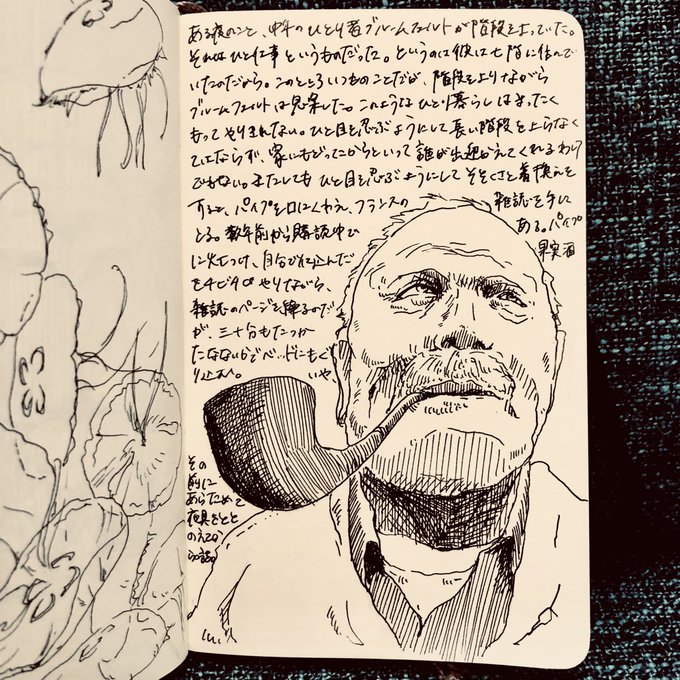 ある夜のこと、中年のひとり者ブルームフェルトが階段を上っていた。
それはひと仕事というものだった。というのは彼は七階に住んで
いたのだから。このところいつものことだが、階段を上りながら
ブルームフェルトは思案した。このようなひとり暮らしはまったく
もってやりきれない。ひと目を忍ぶようにして長い階段を上らなく
てはならず、家にもどってこからといって誰が出迎かえてくれるわけ
でもない。またしてもひと目を忍ぶようにしてそそくさと着換えを
すると、パイプを口にくわえ、フランスの 雑誌を手に
とる。数年前から購読中で ある。パイプ
に火をつけ、自分で仕込んだ 果実酒
をチビチビやりながら、
雑誌のページを繰るのだ
が、三十分もたつか
たたないかでベッドにもぐ
り込む。 いや、
その
前に
あらためて
夜具をとと
のえてか
らの話。